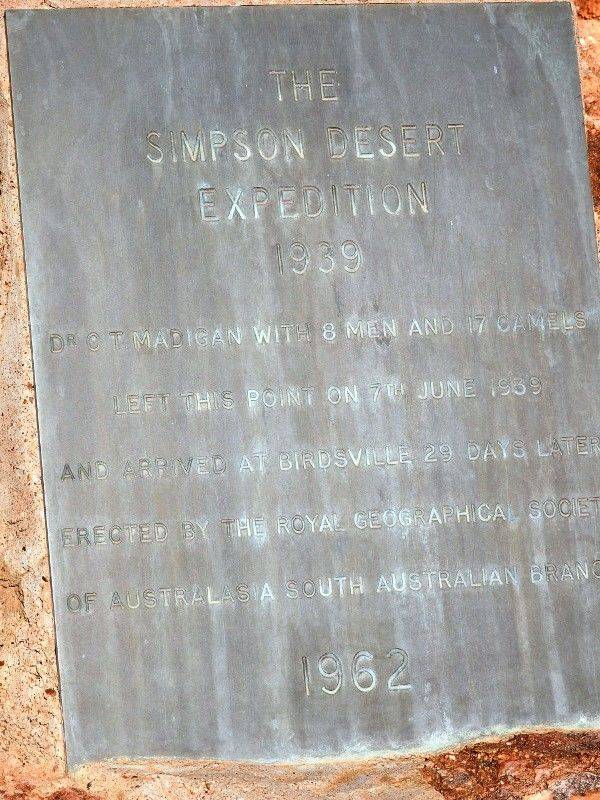 THE
SIMPSON DESERT
EXPEDITION
1939
DR C T MADIGAN WITH 8 MEN AND 17 CAMELS
LEFT THIS POINT ON 7TH JUNE 1939
AND ARRIVED AT BIRDSVILLE 29 DAYS LATER
ERECTED BY THE ROYAL GEOGRAPHICAL SOCIET
OF AUSTRALASIA SOUTH AUSTRALIAN BRANC
1962